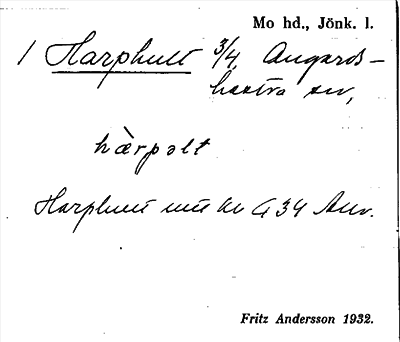 Mo hd., Jönk. l.
1 Harphult 3/4 Angerds-
hestra sn,
hàrpəlt
Harphult utt kv G 34 Anv.
Fritz Andersson 1932.